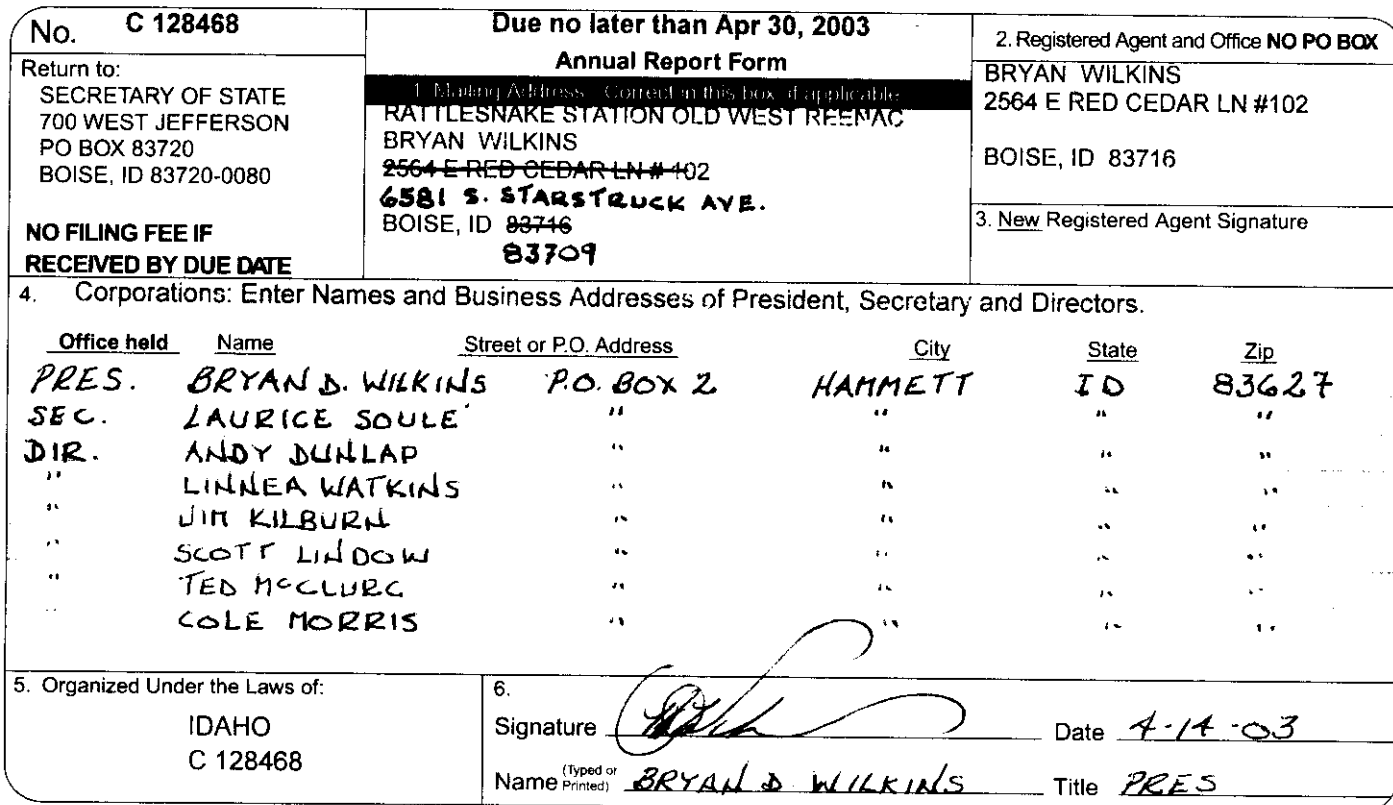 No. C 128468
Return to:
SECRETARY OF STATE
700 WEST JEFFERSON
PO BOX 83720
BOISE, ID 83720-0080
NO FILING FEE IF
RECEIVED BY DUE DATE
Due no later than Apr 30, 2003
Annual Report Form
1. Mailing Address: Correct in this box, if applicable
RATTLESNAKE STATION OLD WEST REENAC
BRYAN WILKINS
2564 E RED CEDAR LN # 102
6581 S. STARSTRUCK AVE.
BOISE, ID 83716
83709
2. Registered Agent and Office NO PO BOX
BRYAN WILKINS
2564 E RED CEDAR LN #102
BOISE, ID 83716
3. New Registered Agent Signature
4. Corporations: Enter Names and Business Addresses of President, Secretary and Directors.
Office held Name Street or P.O. Address City State Zip
PRES. BRYAN D. WILKINS P.O. BOX 2 HAMMETT ID 83627
SEC. LAURICE SOULE " " " "
DIR. ANDY DUNLAP " " " "
" LINNEA WATKINS " " " "
" JIM KILBURN " " " "
" SCOTT LINDOW " " " "
" TED McCLURG " " " "
" COLE MORRIS " " " "
5. Organized Under the Laws of:
IDAHO
C 128468
6.
Signature Date 4-14-03
Name (Typed or Printed) BRYAN D WILKINS Title PRES